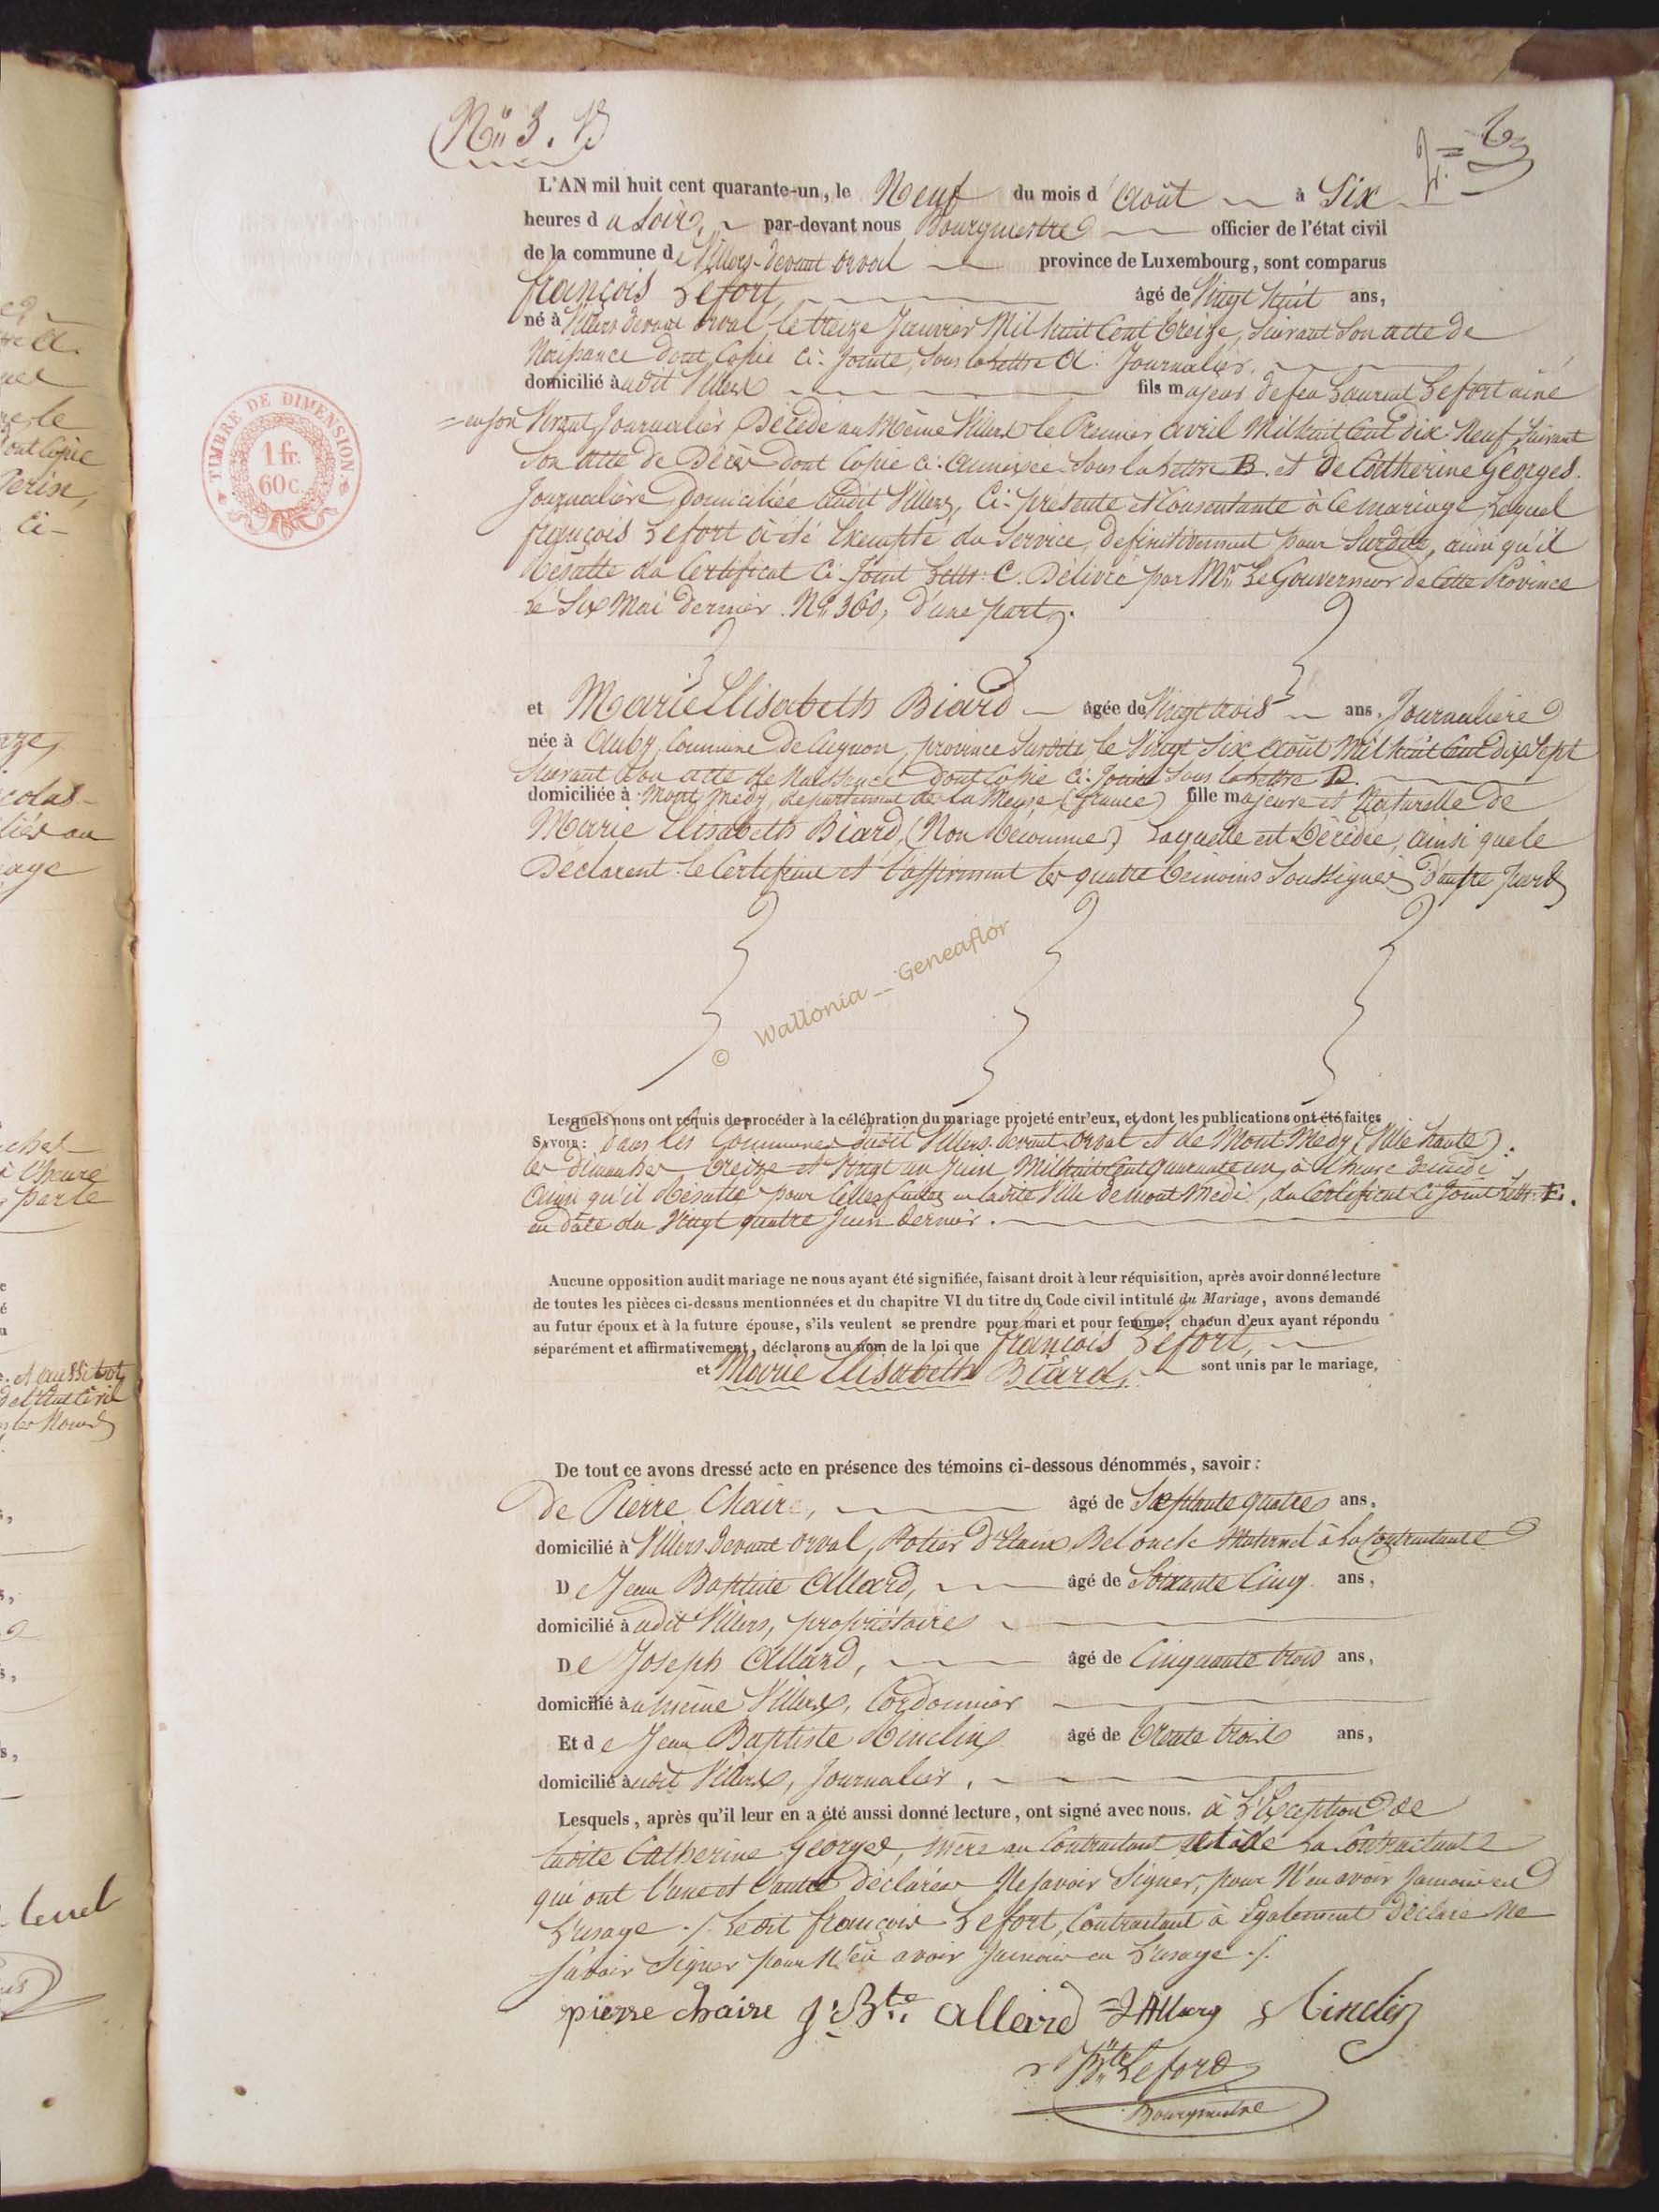 No 3.
L'AN mil huit cent quarante-un, le Neuf du mois d'Août à Six
heures du Soir, par-devant nous Bourgmestre officier de l'état civil
de la commune de Villers-devant orval province de Luxembourg, sont comparus
françois Lefort, âgé de Vingt huit ans,
né à Villers devant orval le treize Janvier Mil huit Cent treize, suivant Son acte de
Naissance dont Copie Ci-Jointe, Sous la lettre A. Journalier.
domicilié audit Villers fils majeur de feu Laurent Lefort ainé
= en son Vivant Journalier Décédé au Même Villers le Premier avril Mil huit Cent dix Neuf, Suivant
Son acte de Décès dont Copie Ci-Annexée Sous la lettre B. et de Catherine Georges.
Journalière Domiciliée audit Villers, Ci-présente et Consentante à Ce mariage, Lequel
françois Lefort à été Exempté du Service, definitivement pour Surdité, ainsi qu'il
Résulte du Certificat Ci-Joint Lettr: C. Délivré par Mr. Le Gouverneur de Cette Province
le Six Mai dernier No. 360, d'une part,
et Marie Elisabeth Biard agée de Vingt trois ans, Journalière
née à Auby, Commune de Cugnon, province Susdite, le Vingt Six Août Mil huit Cent dix Sept
Suivant Son acte de Naissance dont Copie Ci-Jointe Sous la lettre D.
domiciliée à Mont Medy, departement de La Meuse (france) fille majeure et Naturelle de
Marie Elisabeth Biard, (Non Reconnue) Laquelle est Décédée, ainsi que le
Déclarent le Certifient et l'affirment les quatre témoins Soussignés d'autre part
© Wallonia _ Geneaflor
Lesquels nous ont requis de procéder à la célébration du mariage projeté entr'eux, et dont les publications ont été faites
SAVOIR: dans les Communes dudit Villers devant orval et de Mont Medy (Ville haute)
les dimanches treize et Vingt un Juin Mil huit Cent Quarante un, à l'heure de midi
Ainsi qu'il Résulte pour Celles faites en ladite Ville de mont Médi, du Certificat Ci Joint Lettr: E.
en date du Vingt quatre Juin dernier.
Aucune opposition audit mariage ne nous ayant été signifiée, faisant droit à leur réquisition, après avoir donné lecture
de toutes les pièces ci-dessus mentionnées et du chapitre VI du titre du Code civil intitulé du Mariage, avons demandé
au futur époux et à la future épouse, s'ils veulent se prendre pour mari et pour femme; chacun d'eux ayant répondu
séparément et affirmativement, déclarons au nom de la loi que françois Lefort,
et Marie Elisabeth Biard, sont unis par le mariage,
De tout ce avons dressé acte en présence des témoins ci-dessous dénommés, savoir:
De Pierre Chaire, âgé de Septante quatre ans,
domicilié à Villers devant orval, Potier D'Etain, Bel oncle Maternel à La Contractante
De Jean Baptiste Allard, âgé de Soixante Cinq ans,
domicilié audit Villers, propriétaire
De Joseph Allard, âgé de Cinquante trois ans,
domicilié au même Villers, Cordonnier
Et de Jean Baptiste Tinclin âgé de trente trois ans,
domicilié audit Villers, Journalier.
Lesquels, après qu'il leur en a été aussi donné lecture, ont signé avec nous. à L'Exception de
ladite Catherine Georges, mère au Contractant et de La Contractante
qui ont l'une et l'autre Déclarées Ne savoir Signer, pour N'en avoir Jamais eu
L'usage ./. Ledit françois Lefort, Contractant à Egalement Déclaré Ne
Savoir Signer pour N'en avoir Jamais eu L'usage ./.
pierre chaire J. Bte. allard J Allard Tinclin
Bte Lefort
Bourgmestre
TIMBRE DE DIMENSION
1 fr.
60 c.